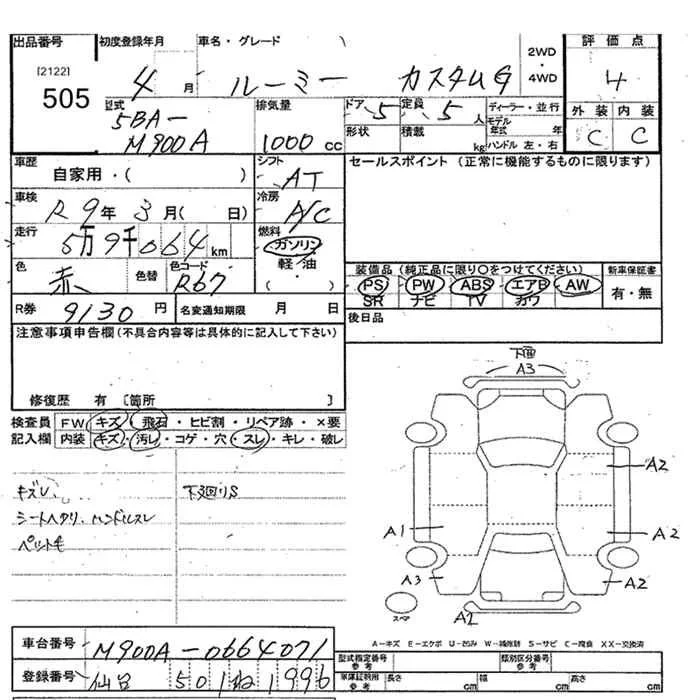 出品番号 初度登録年月 車名・グレード
[2122]
505
4 月 ルーミー カスタムG
2WD
・
4WD
評価点
4
外装 内装
C C
型式
5BA-
M900A
排気量
1000 cc
ドア 5 定員 5 人
形状 積載 kg
ディーラー・並行
モデル年式 年
ハンドル 左・右
車歴
自家用・( )
シフト
AT
セールスポイント (正常に機能するものに限ります)
車検
R9年 3月( 日)
冷房
A/C
走行
5万9千064km
燃料
ガソリン
軽・油
( ・ )
色
赤 色替
色コード
R67
装備品 (純正品に限り○をつけてください)
PS PW ABS エアB AW
SR ナビ TV カワ
新車保証書
有・無
R券 9130 円 名変通知期限 月 日
後日品
注意事項申告欄(不具合内容等は具体的に記入して下さい)
修復歴 有 〔箇所 〕
検査員 FW キズ・飛石・ヒビ割・リペア跡・×要
記入欄 内装 キズ・汚レ・コゲ・穴・スレ・キレ・破レ
キズレ 下廻りS
シートヘタリ、ハンドルスレ
ペット毛
下回
A3
A2
A1 A2
A3 A2
A2
スペア
A-キズ E-エクボ U-凹み W-補修跡 S-サビ C-腐食 XX-交換済
車台番号 M900A-0664071
登録番号 仙台 501ね1996
型式指定番号
参考
類別区分番号
参考
車庫証明用
参考
長さ cm 幅 cm 高さ cm